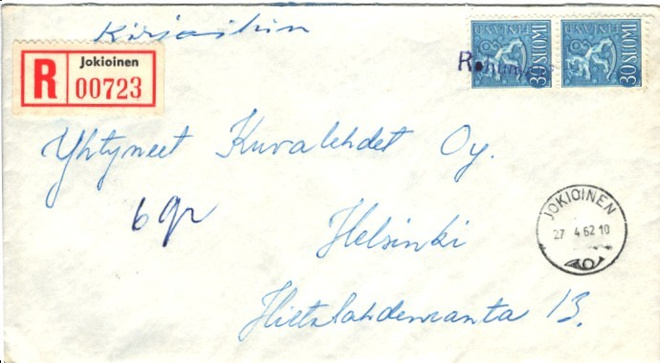 Kirjoihin
Jokioinen
R 00723
30 SUOMI
30 SUOMI
Yhtyneet Kuvalehdet Oy.
6 gr
JOKIOINEN
27 4.62 10
Helsinki
Hietalahdenranta 13.